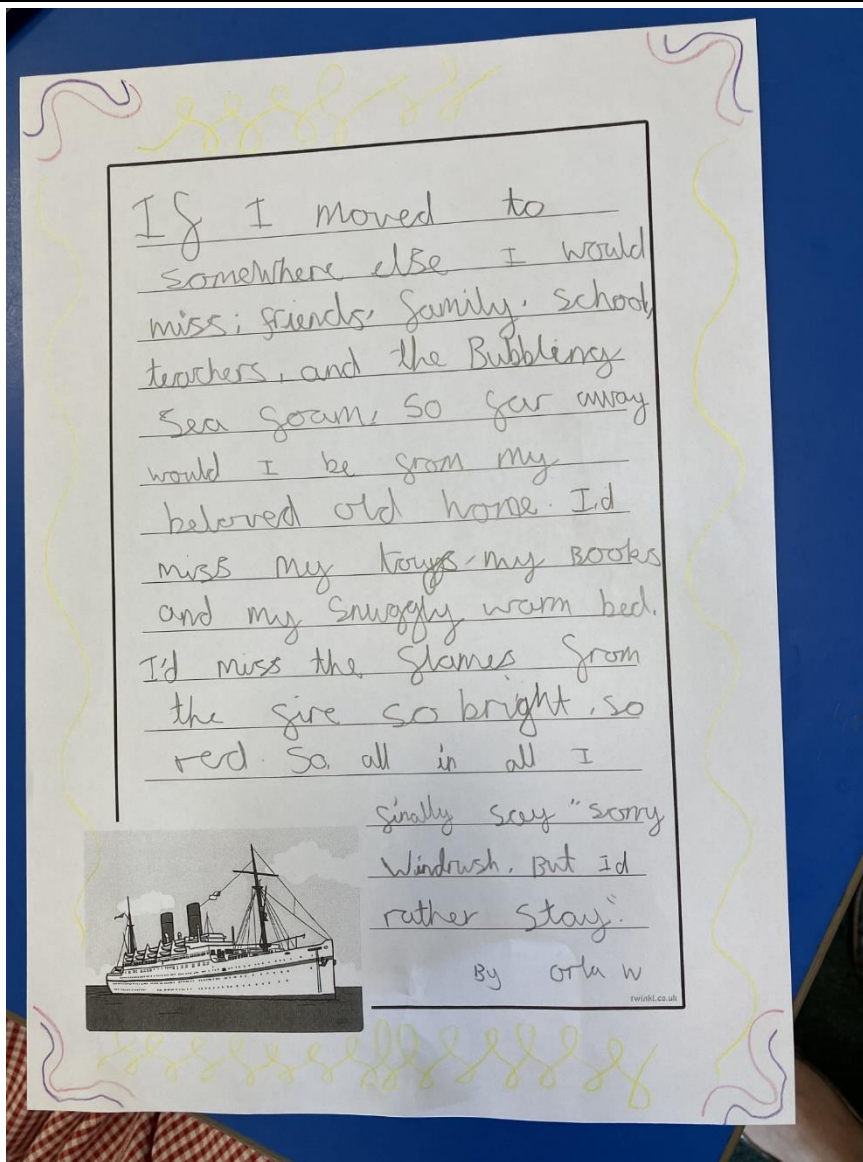 If I moved to
somewhere else I would
miss; friends, family, school,
teachers, and the Bubbling
Sea foam, So far away
would I be from my
beloved old home. I,d
miss my toys, my Books
and my Snuggly warm bed.
I'd miss the flames from
the fire so bright, so
red. So, all in all I
finally say "sorry
Windrush, But Id
rather stay".
By Orla W
twinkl.co.uk